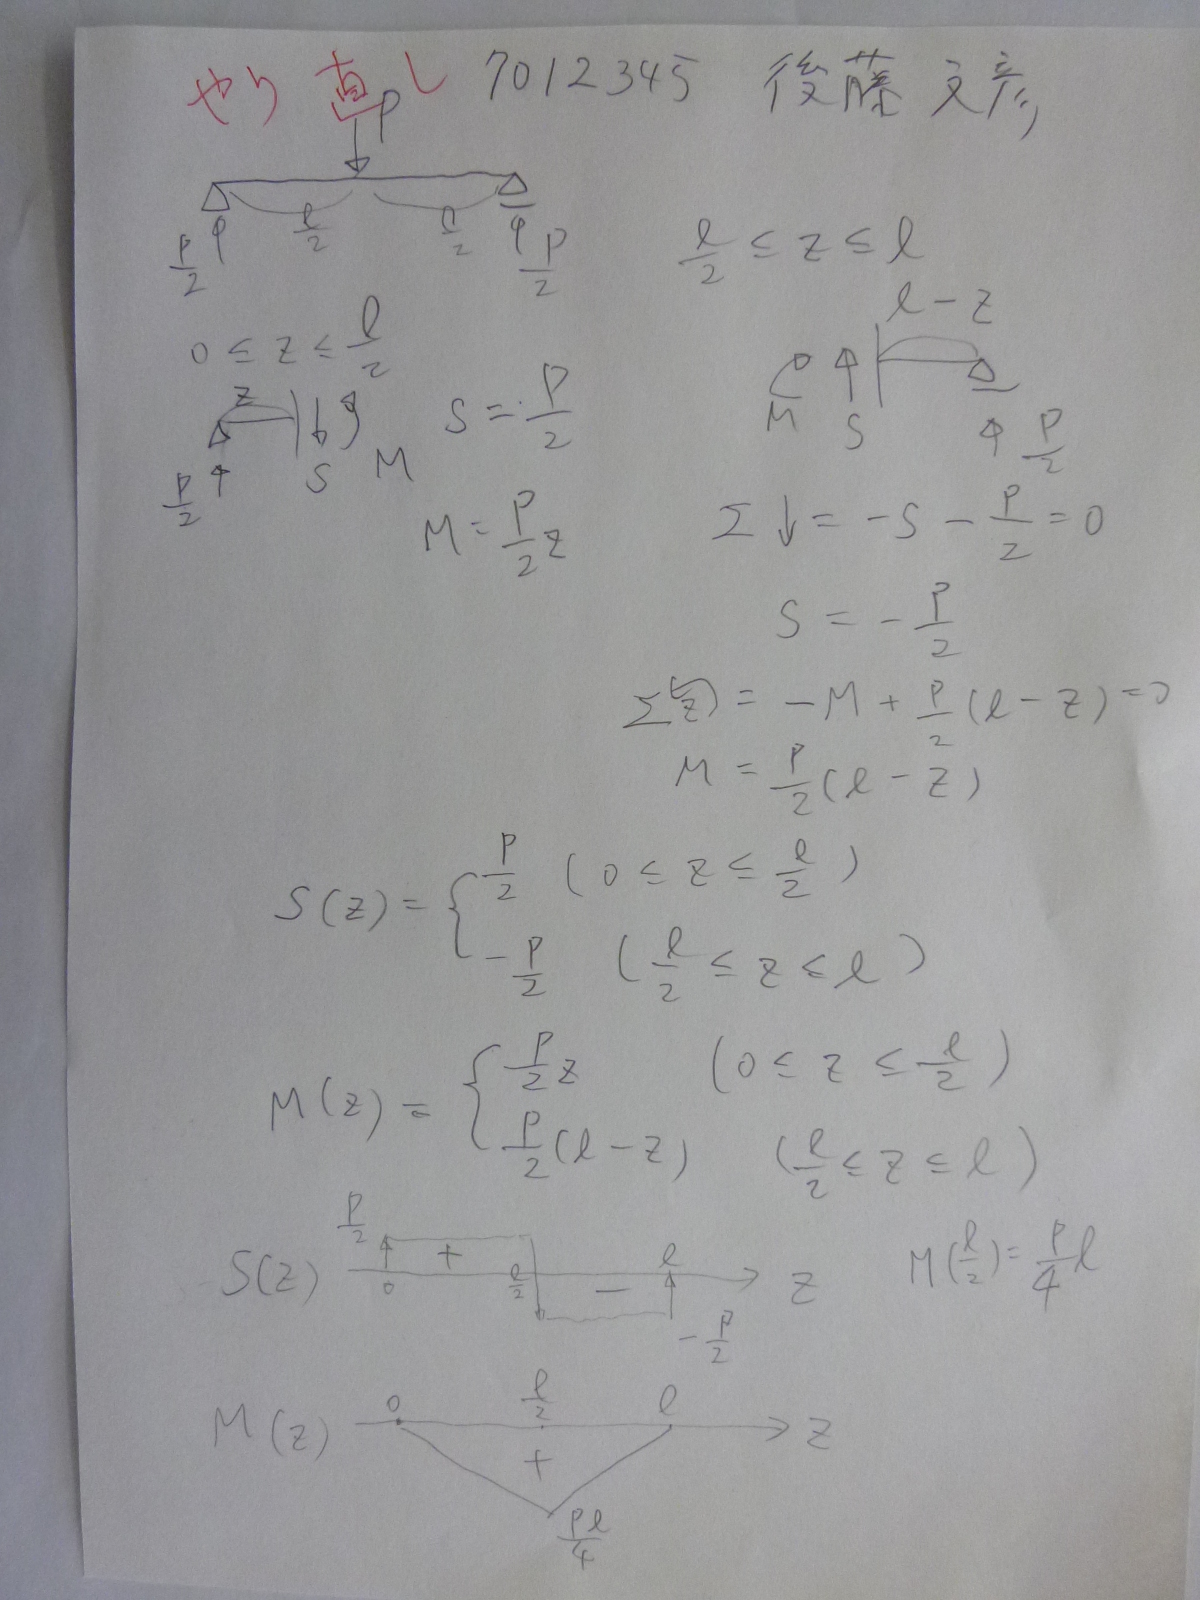 やり直し 7012345 後藤 文彦
P
l/2 l/2
P/2 P/2
0 ≤ z ≤ l/2
z
P/2 S M
S = P/2
M = P/2 z
l/2 ≤ z ≤ l
l - z
M S P/2
Σ↓ = -S - P/2 = 0
S = - P/2
Σ(z) = -M + P/2 (l - z) = 0
M = P/2 (l - z)
S(z) = { P/2 (0 ≤ z ≤ l/2)
- P/2 (l/2 ≤ z ≤ l)
M(z) = { P/2 z (0 ≤ z ≤ l/2)
P/2 (l - z) (l/2 ≤ z ≤ l)
P/2
S(z) 0 + l/2 − l z
- P/2
M(l/2) = P/4 l
M(z) 0 l/2 l z
+
Pl/4